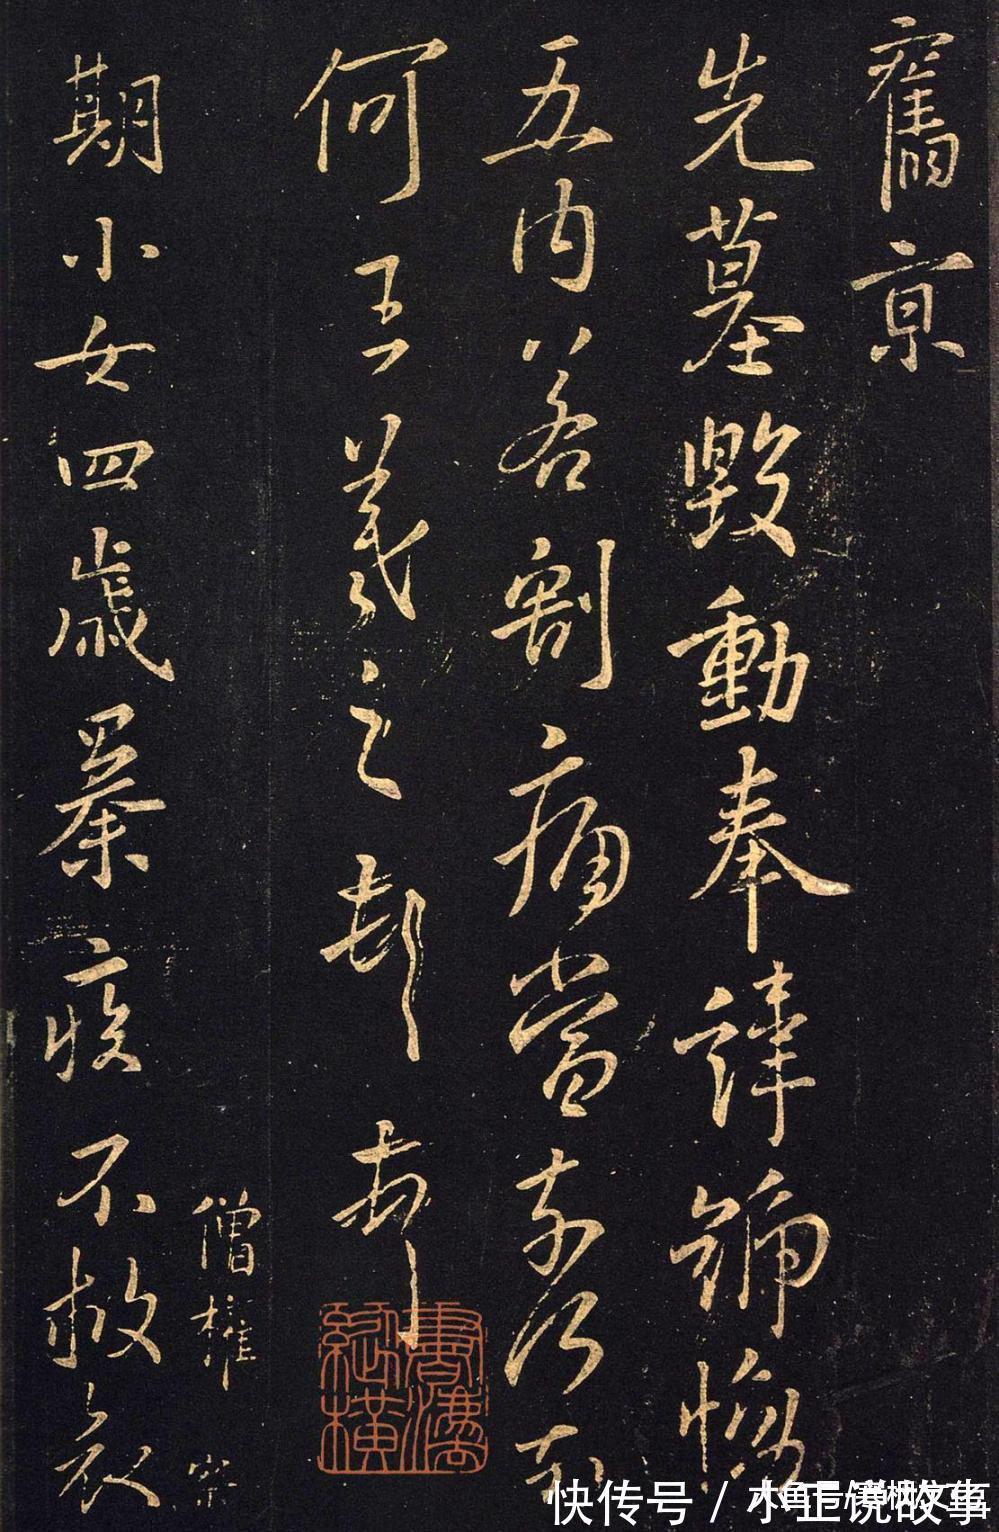 舊京
先墓毀動奉諱號惋
五內若割痛當奈何奈
何王羲之頓首
僧權
期小女四歲暴疾不救哀
快传号 / 小正说故事